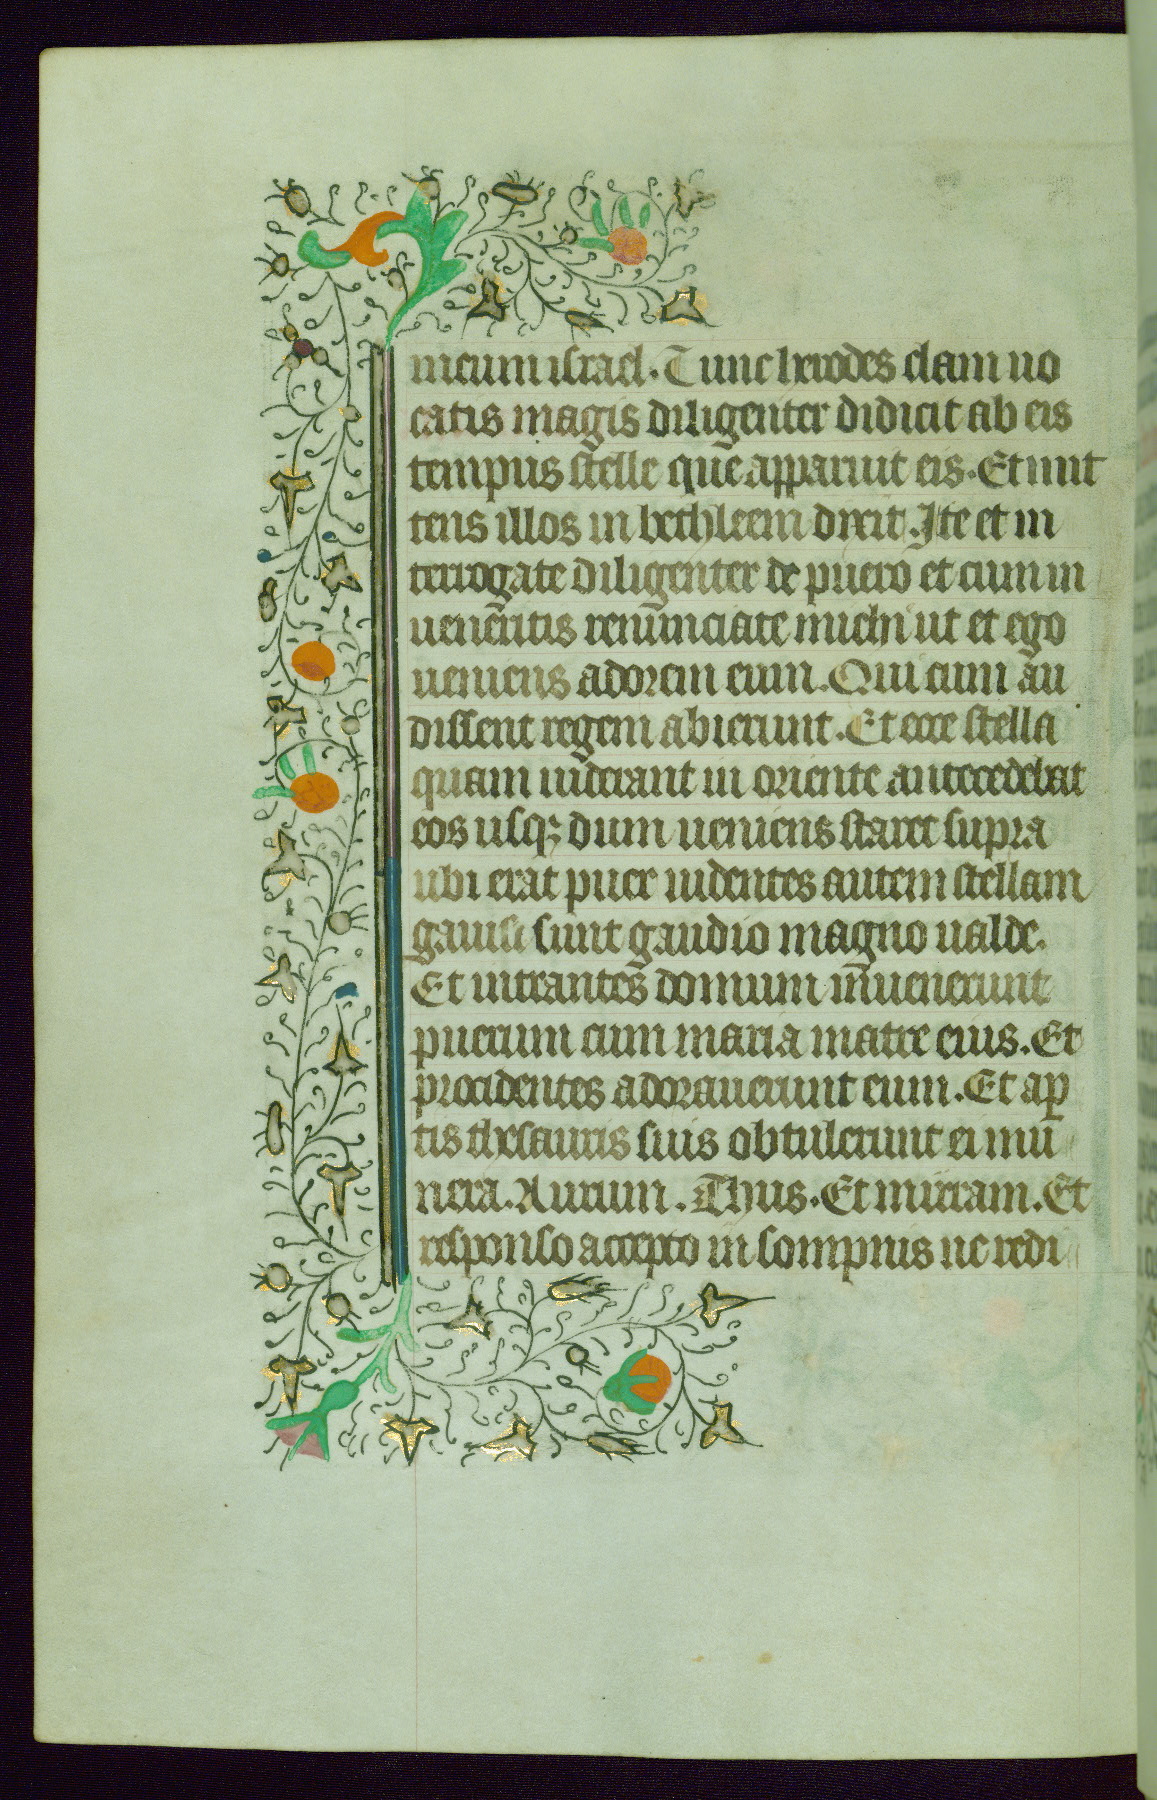 meum israel. Tunc herodes clam uo
catis magis diligenter didicit ab eis
tempus stelle que apparuit eis. Et mit
tens illos in bethleem dixit. Ite et in
terrogate diligenter de puero et cum in
uen̄eritis renūnciate michi ut et ego
ueniens adorem eum. Qui cum au
dissent regem abierunt. Et ecce stella
quam uiderant in oriente antecedebat
eos usqꝫ dum ueniens staret supra
ubi erat puer uidentes autem stellam
gauisi sunt gaudio magno ualde.
Et intrantes domum in̄uenerunt
puerum cum maria matre eius. Et
procidentes adorauerunt eum. Et ap
tis thesauris suis obtulerunt ei mu
nera. Aurum. Thus. Et mirram. Et
responso accepto in sompnis ne redi